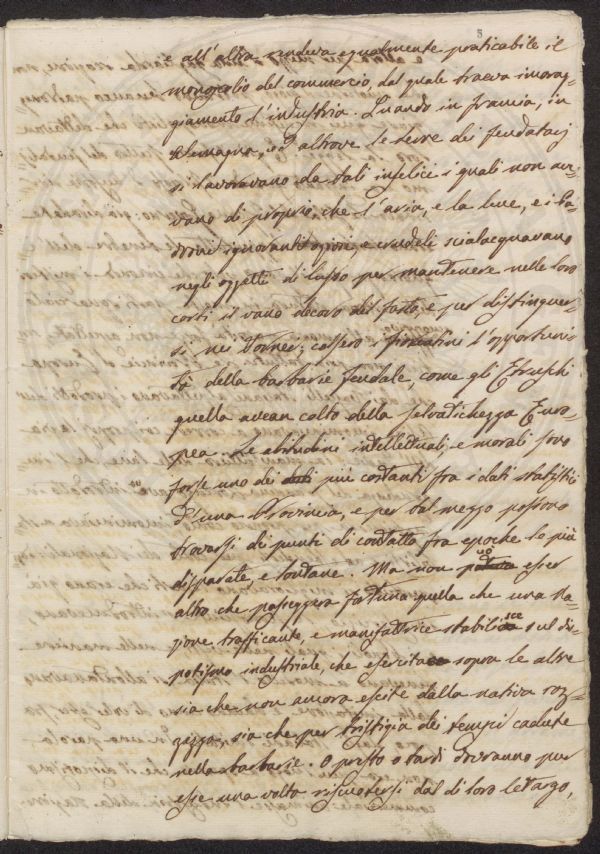 8
e all'altra rendeva egualmente praticabile il
monopolio del commercio, dal quale traeva incorag=
giamento l'industria. Quando in francia, in
Alemagna, ed altrove le terre dei feudatarj
si lavoravano da tali infelici i quali non ave=
vano di proprio, che l'aria, e la luce, e i Pa=
droni ignoranti, oziosi, e crudeli scialacquavano
negli oggetti di lusso per mantenere nelle loro
corti il vano decoro del fasto, e per distinguer=
si nei Tornei; colsero i fiorentini l'opportuni=
tà della barbarie feudale, come gli Etruschi
quella avean colto della selvatichezza Euro=
pea. Le abitudini intellettuali, e morali sono
forse uno dei più costanti fra i dati statistici
d'una Provincia, e per tal mezzo possono
trovarsi dei punti di contatto fra epoche le più
disparate, e lontane. Ma non può esser
altro che passeggera fortuna quella che una Na=
zione trafficante, e manifattrice stabilisce sul di=
spotismo industriale, che esercita sopra le altre
sia che non ancora escite dalla nativa roz=
zezza, sia che per tristizia dei tempi cadute
nella barbarie. O presto o tardi dovranno pur
esse una volta riscuotersi dal di loro letargo,